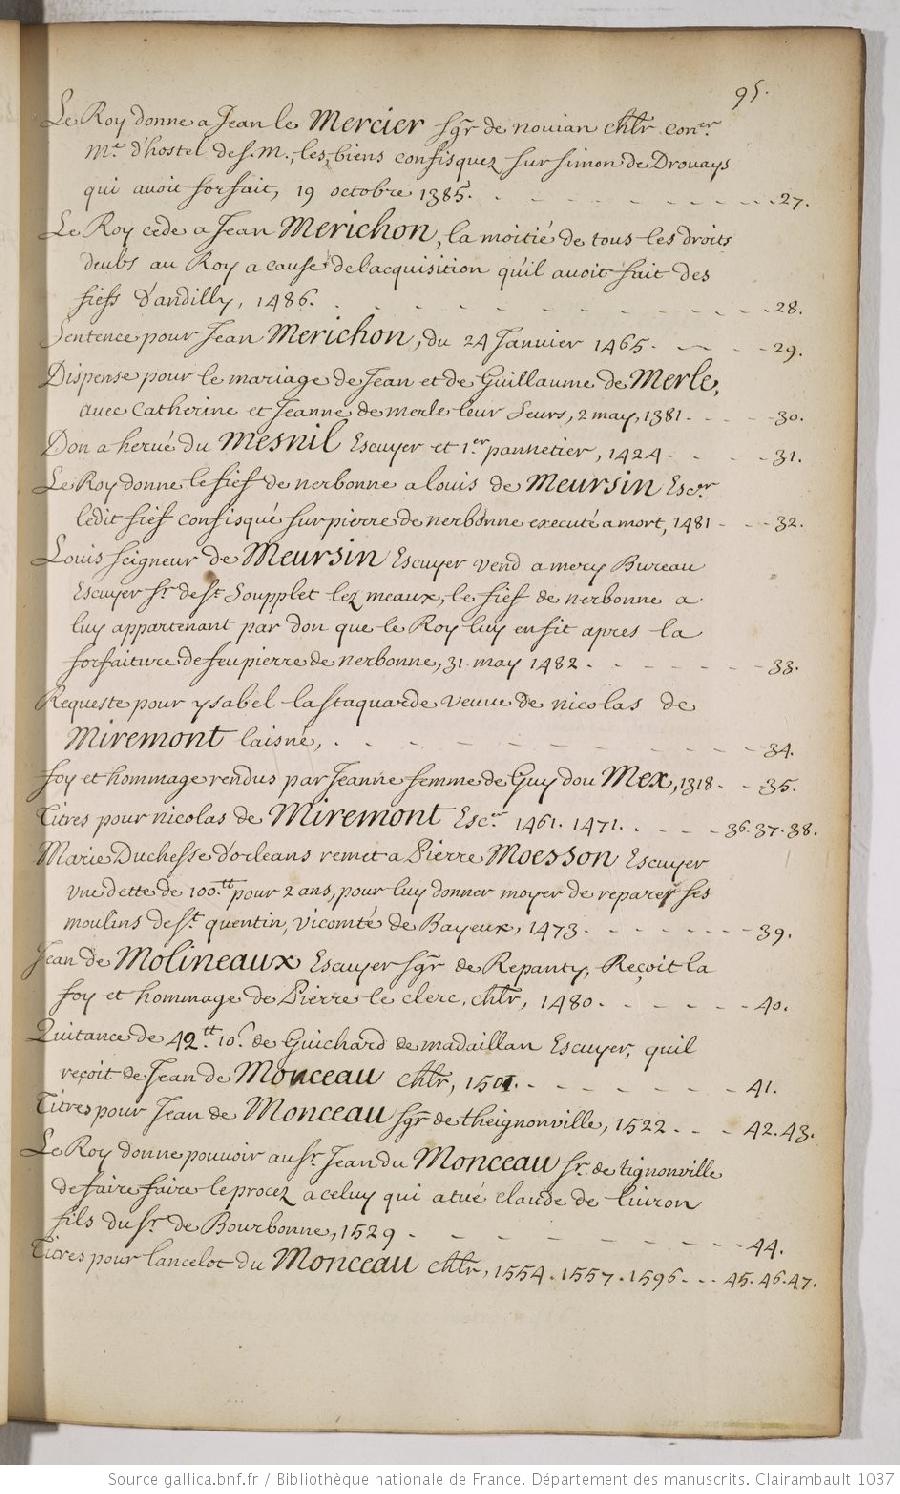 95.
Le Roy donne a Jean le Mercier sgr de nouian chlr con.er
M.e d'hostel de S.M., les biens confisquez sur simon de Drouays
qui avoit forfait, 19 octobre 1385. 27.
Le Roy cede a Jean Merichon, la moitié de tous les droits
deubs au Roy a cause de l'acquisition qu'il avoit fait des
fiefs d'andilly, 1486. 28.
Sentence pour Jean Merichon, du 24 Janvier 1465. 29.
Dispense pour le mariage de Jean et de Guillaume de Merle,
avec Catherine et Jeanne de merle leur seurs, 2 may, 1381. 30.
Don a hervé du Mesnil Escuyer et 1.er pannetier, 1424 31.
Le Roy donne le fief de nerbonne a louis de Meursin Esc.er
ledit fief confisqué sur pierre de nerbonne executé a mort, 1481 32.
Louis seigneur de Meursin Escuyer vend a mery Bureau
Escuyer sr. de st Soupplet lez meaux, le fief de nerbonne a
luy appartenant par don que le Roy luy en fit apres la
forfaiture de feu pierre de nerbonne, 31 may 1482. 33.
Requeste pour ysabel lastaquarde veuve de nicolas de
Miremont laisné, 34.
foy et hommage rendus par Jeanne femme de Guy dou Mex, 1318. 35.
Titres pour nicolas de Miremont Esc.er 1461. 1471. 36. 37. 38.
Marie Duchesse d'orleans remet a Pierre Moesson Escuyer
vne dette de 100.tt pour 2 ans, pour luy donner moyer de reparer ses
moulins de st. quentin, vicomté de Bayeux, 1473. 39.
Jean de Molineaux Escuyer sgr de Repanty, Reçoit la
foy et hommage de Pierre le clerc, chlr, 1480. 40.
Quitance de 42.tt 10.s de Guichard de madaillan Escuyer, quil
reçoit de Jean de Monceau chlr, 41.
Titres pour Jean de Monceau sgr de theignonville, 1522. 42. 43.
Le Roy donne pouvoir au sr. Jean du Monceau sr. de tignonville
de faire faire le procez a celuy qui a tué claude de liuron
fils du sr de Bourbonne, 1529 44.
Titres pour lancelot du Monceau chlr, 1554. 1557. 1596 45. 46. 47.
Source gallica.bnf.fr / Bibliothèque nationale de France. Département des manuscrits. Clairambault 1037